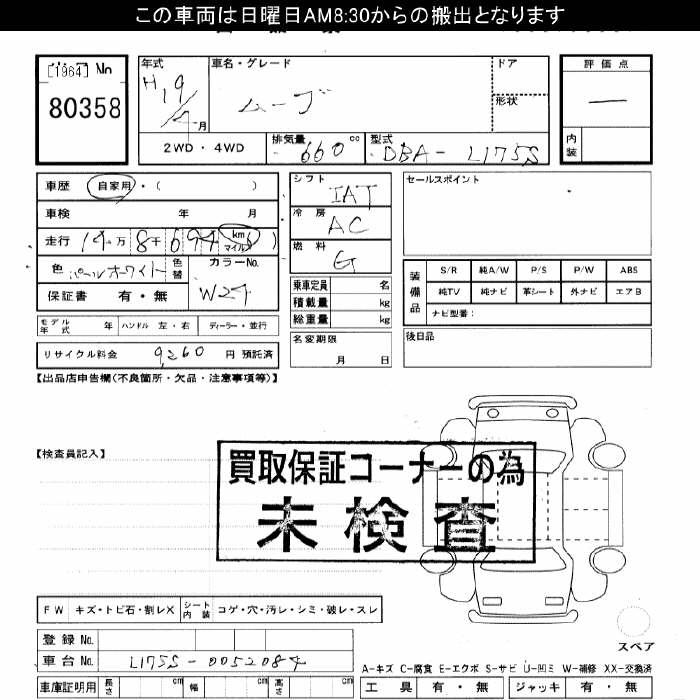 この車両は日曜日AM8:30からの搬出となります
[1964] No
80358
年式
H19/4月
車名・グレード
ムーブ
ドア
形状
評価点
—
内装
2WD・4WD
排気量
660cc
型式
DBA-L175S
車歴 自家用・( )
車検 年 月
走行 14万8千694 km マイル( )
色 パールホワイト 色替
カラーNo.
W24
保証書 有・無
シフト
IAT
冷房
AC
燃料
G
乗車定員 名
積載量 kg
総重量 kg
セールスポイント
装備品
S/R 純A/W P/S P/W ABS
純TV 純ナビ 革シート 外ナビ エアB
ナビ型番:
モデル年式 年 ハンドル 左・右 ディーラー・並行
リサイクル料金 9,260 円 預託済
名変期限
月 日
後日品
【出品店申告欄(不良箇所・欠品・注意事項等)】
【検査員記入】
買取保証コーナーの為
未検査
FW キズ・トビ石・割レX シート内装 コゲ・穴・汚レ・シミ・破レ・スレ
スペア
登録No.
車台No. L175S-0052084
A-キズ C-腐食 E-エクボ S-サビ U-凹ミ W-補修 XX-交換済
車庫証明用 長さ cm 幅 cm 高さ cm
工具 有・無 ジャッキ 有・無